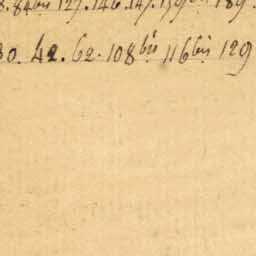 84bis 127. 146. 147. 159bis 189.
30. 42. 62. 108bis 116bis 129